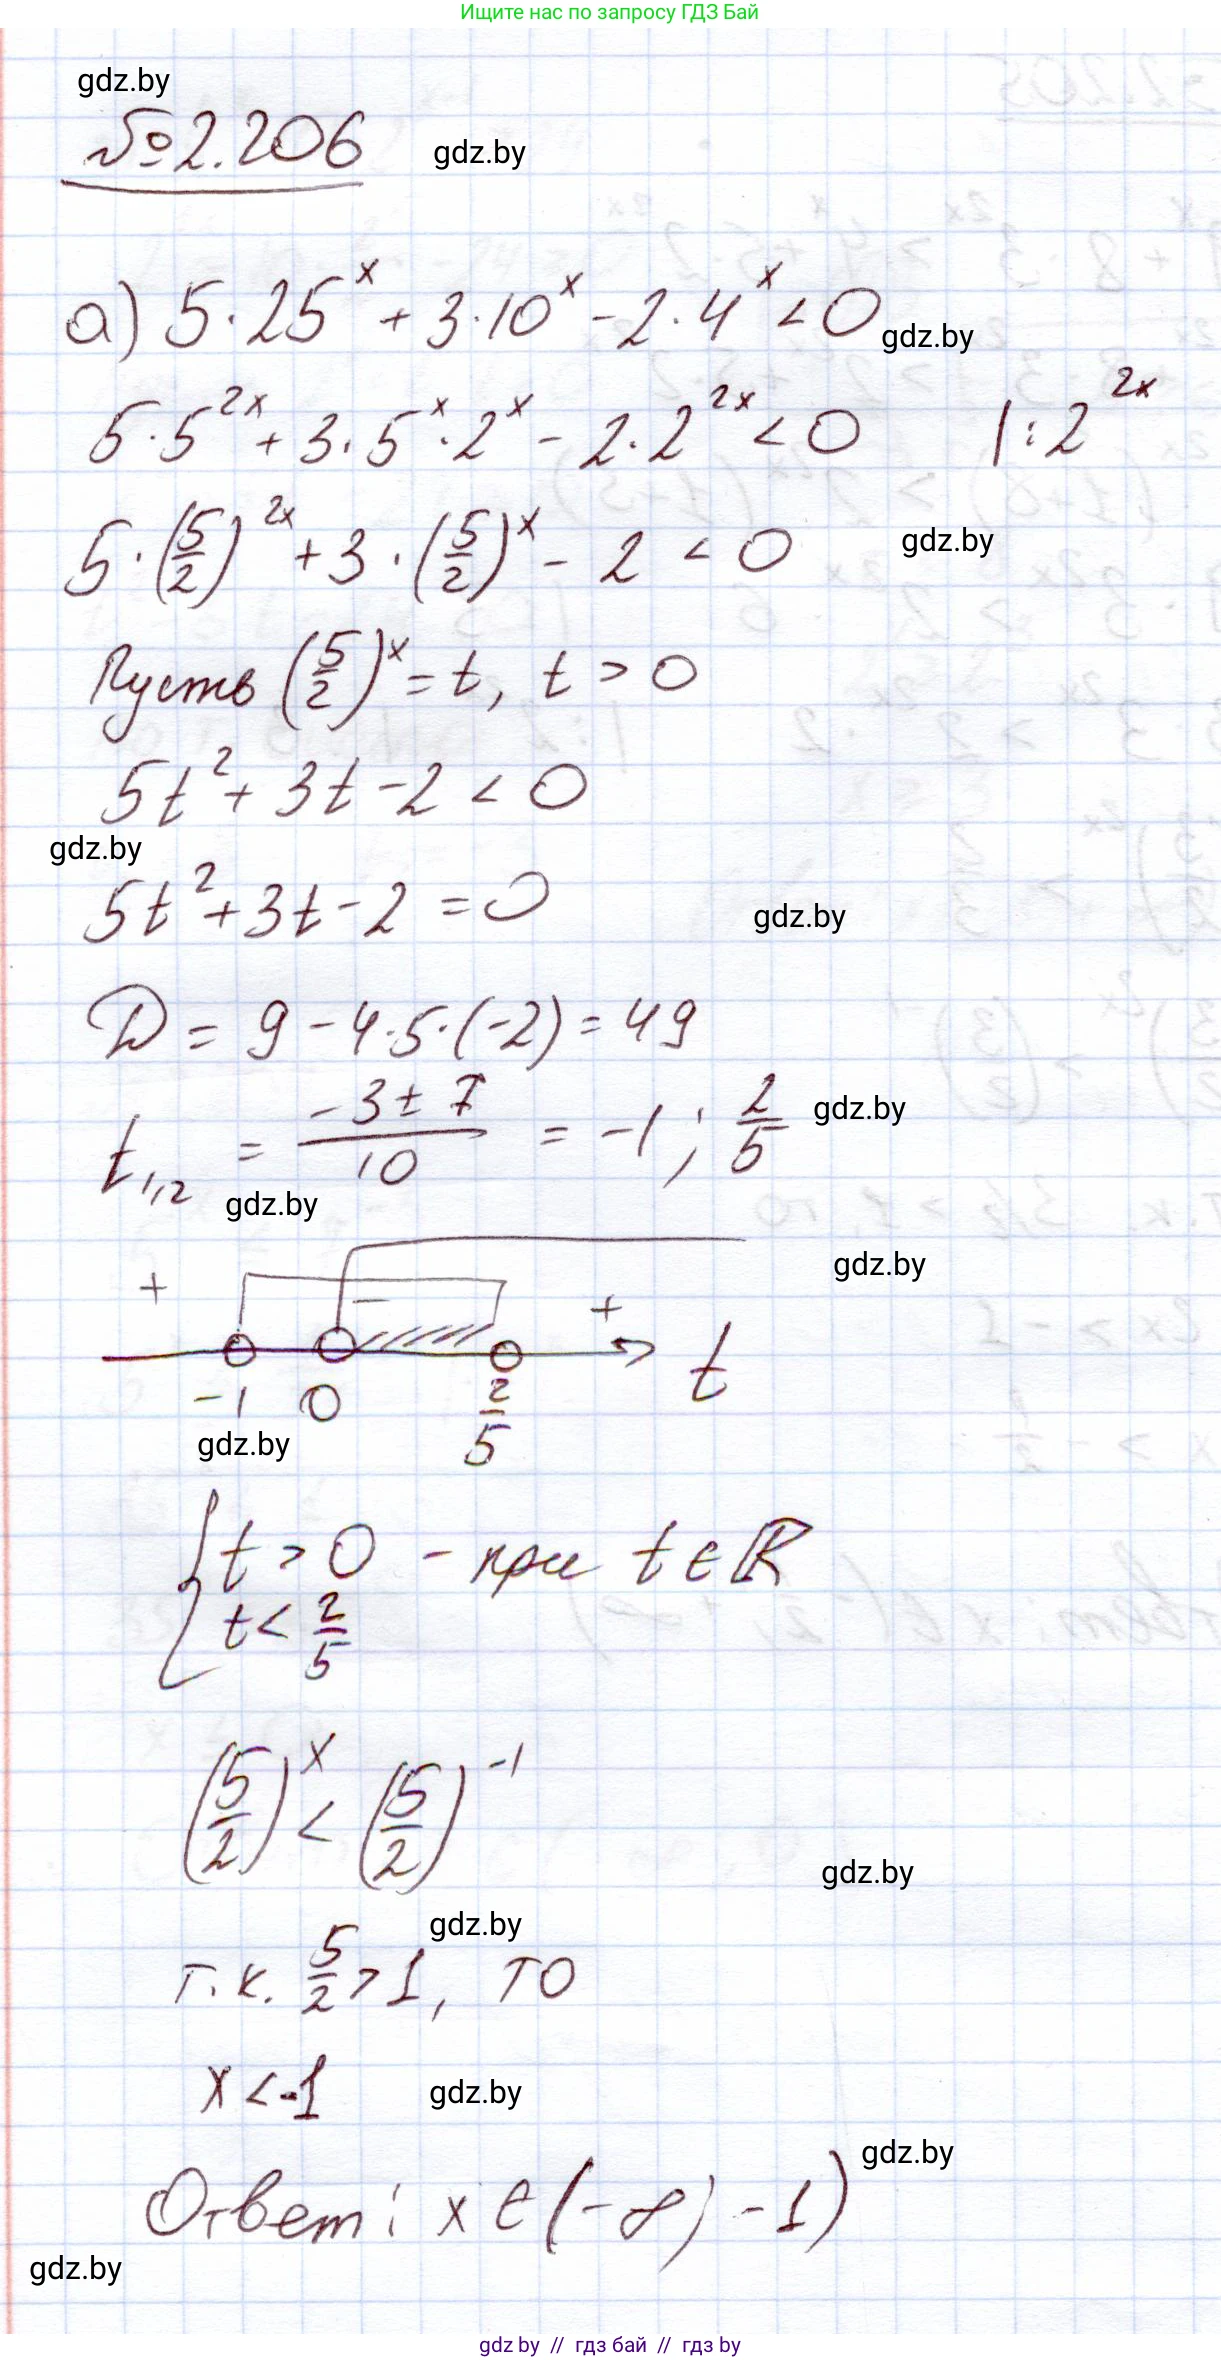 Ищите нас по запросу ГДЗ Бай
gdz.by
№2.206 gdz.by
а) 5·25^x + 3·10^x - 2·4^x < 0 gdz.by
5·5^{2x} + 3·5^x·2^x - 2·2^{2x} < 0 |:2^{2x}
5·(5/2)^{2x} + 3·(5/2)^x - 2 < 0 gdz.by
Пусть (5/2)^x = t, t > 0
5t^2 + 3t - 2 < 0
gdz.by
5t^2 + 3t - 2 = 0
gdz.by
D = 9 - 4·5·(-2) = 49
t_{1,2} = (-3 ± 7)/10 = -1; 2/5 gdz.by
gdz.by
gdz.by
+ - +
-1 0 2/5 t
gdz.by
{ t > 0 - при t ∈ ℝ
t < 2/5
(5/2)^x < (5/2)^{-1}
gdz.by
gdz.by
т.к. 5/2 > 1, то
x < -1 gdz.by
gdz.by
Ответ: x ∈ (-∞; -1)
gdz.by
gdz by // гдз бай // гдз by